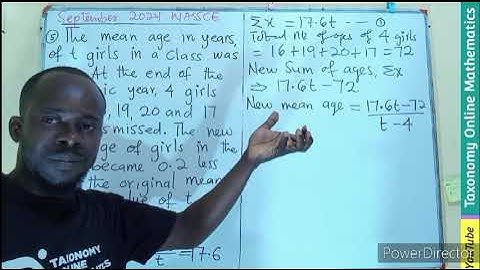 September 2024 WASSCE
⑤ The mean age in years,
of t girls in a class was
At the end of the
ic year, 4 girls
, 19, 20 and 17
smissed. The new
ge of girls in the
became 0.2 less
the original mean
lue of t
t
= 17.6
Σx = 17.6t --- ①
Total nb of ages of 4 girls
= 16+19+20+17 = 72
New Sum of ages, Σx
⇒ 17.6t - 72
New mean age = 17.6t-72
t-4
TAXONOMY
Taxonomy Online Mathematics
YouTube
PowerDirector